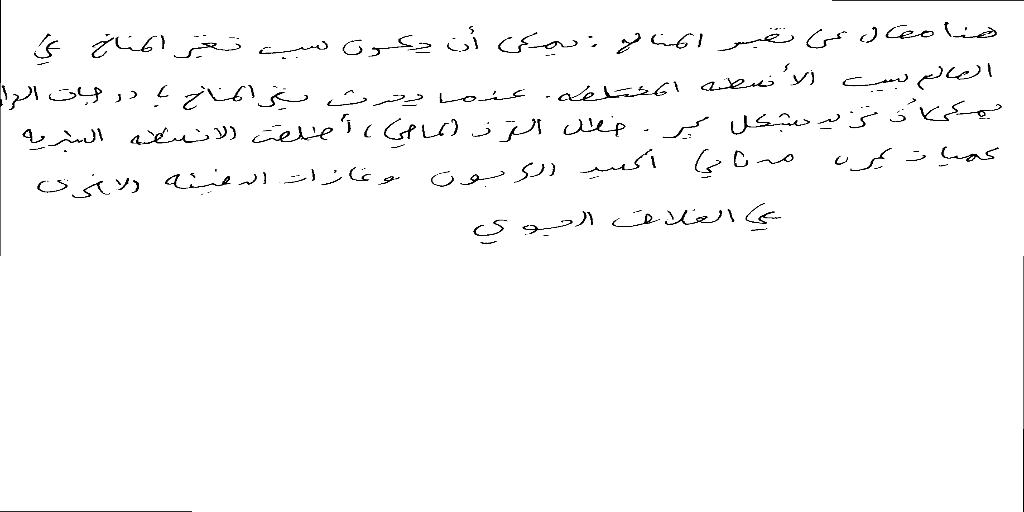 هنا مقال عن تغير المناخ : يمكن أن يكون سبب تغير المناخ في
العالم بسبب الأنشطه المختلطه. عندما يحدث تغير المناخ ، درجات
يمكن أن تزيد بشكل كبير. خلال القرن الماضي، أطلقت الانشطه البشريه
كميات كبيره من ثاني اكسيد الكربون وغازات الدفيئه الاخرى
في الغلاف الجوي